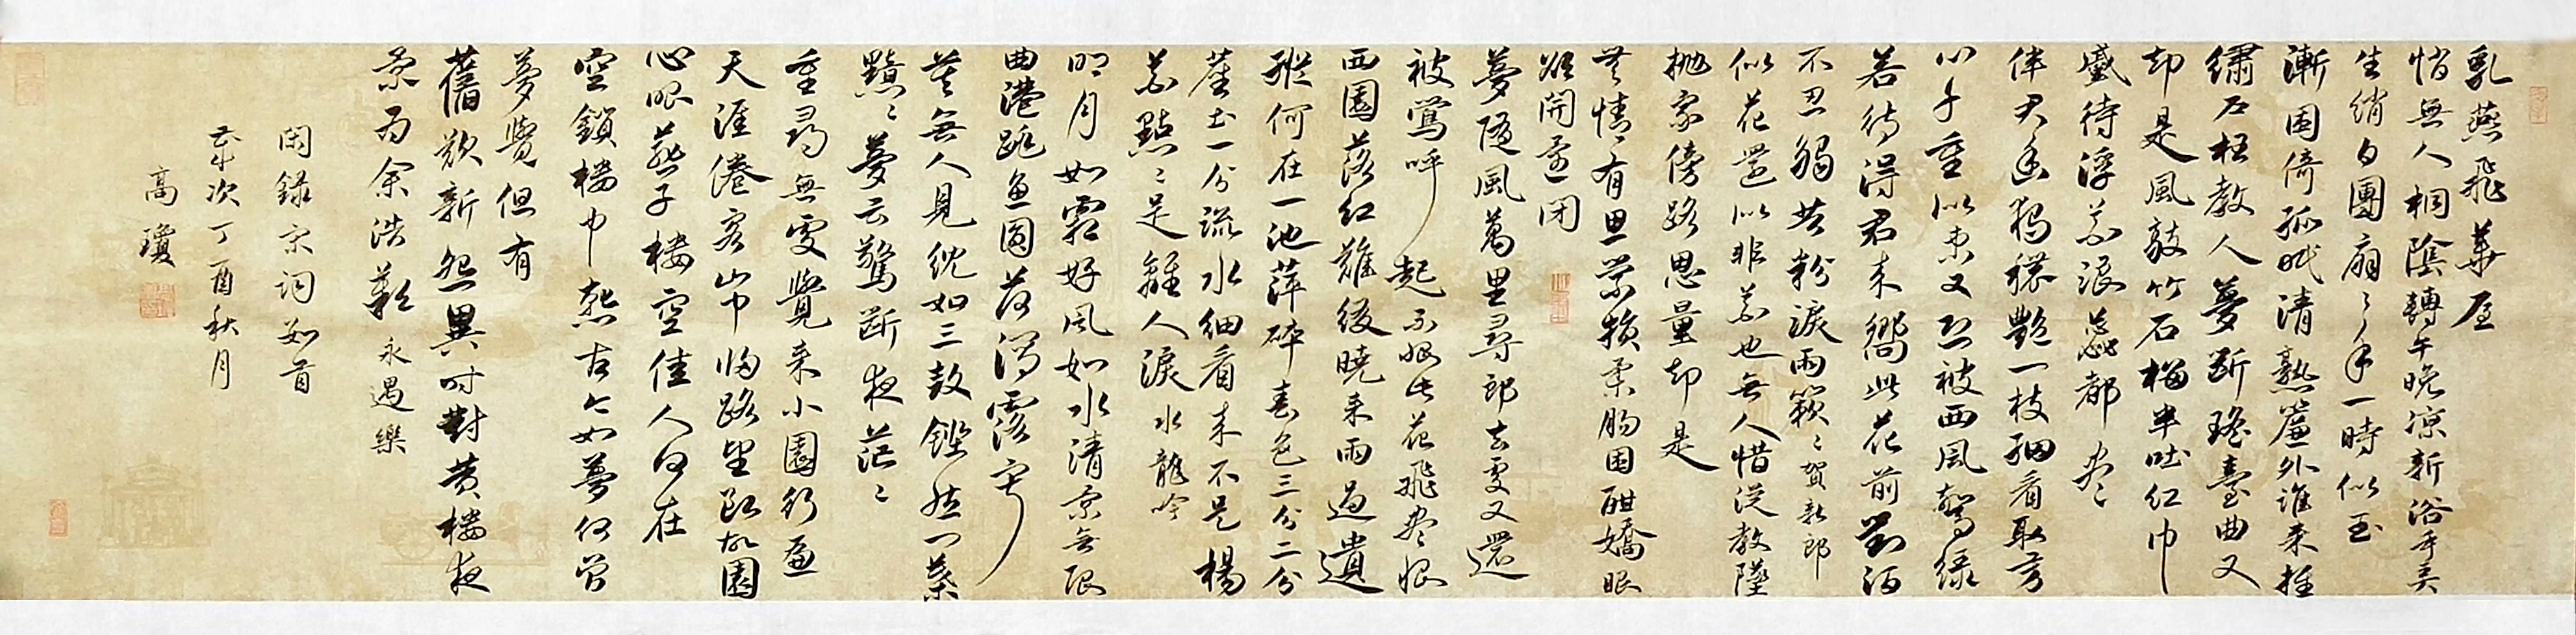 乳燕飛華屋
悄無人桐陰轉午晚涼新浴手弄
生綃白團扇〻手一時似玉
漸困倚孤眠清熟簾外誰來推
繡戶枉教人夢斷瑤臺曲又
却是風敲竹石榴半吐紅巾
蹙待浮花浪蕊都盡
伴君幽獨穠艷一枝細看取芳
心千重似束又恐被西風驚綠
若待得君來嚮此花前對酒
不忍觸共粉淚兩簌〻賀新郎
似花還似非花也無人惜從教墜
拋家傍路思量却是
無情有思縈損柔腸困酣嬌眼
欲開還閉
夢隨風萬里尋郎去處又還
被鶯呼起不恨此花飛盡恨
西園落紅難綴曉來雨過遺
蹤何在一池萍碎春色三分二分
塵土一分流水細看來不是楊
花點〻是離人淚水龍吟
明月如霜好風如水清景無限
曲港跳魚圓荷瀉露寂
寞無人見紞如三鼓鏗然一葉
黯〻夢雲驚斷夜茫〻
重尋無處覺來小園行遍
天涯倦客山中歸路望斷故園
心眼燕子樓空佳人何在
空鎖樓中燕古今如夢何曾
夢覺但有
舊歡新怨異時對黃樓夜
景為余浩歎永遇樂
閑錄宋詞數首
歲次丁酉秋月
高瓊